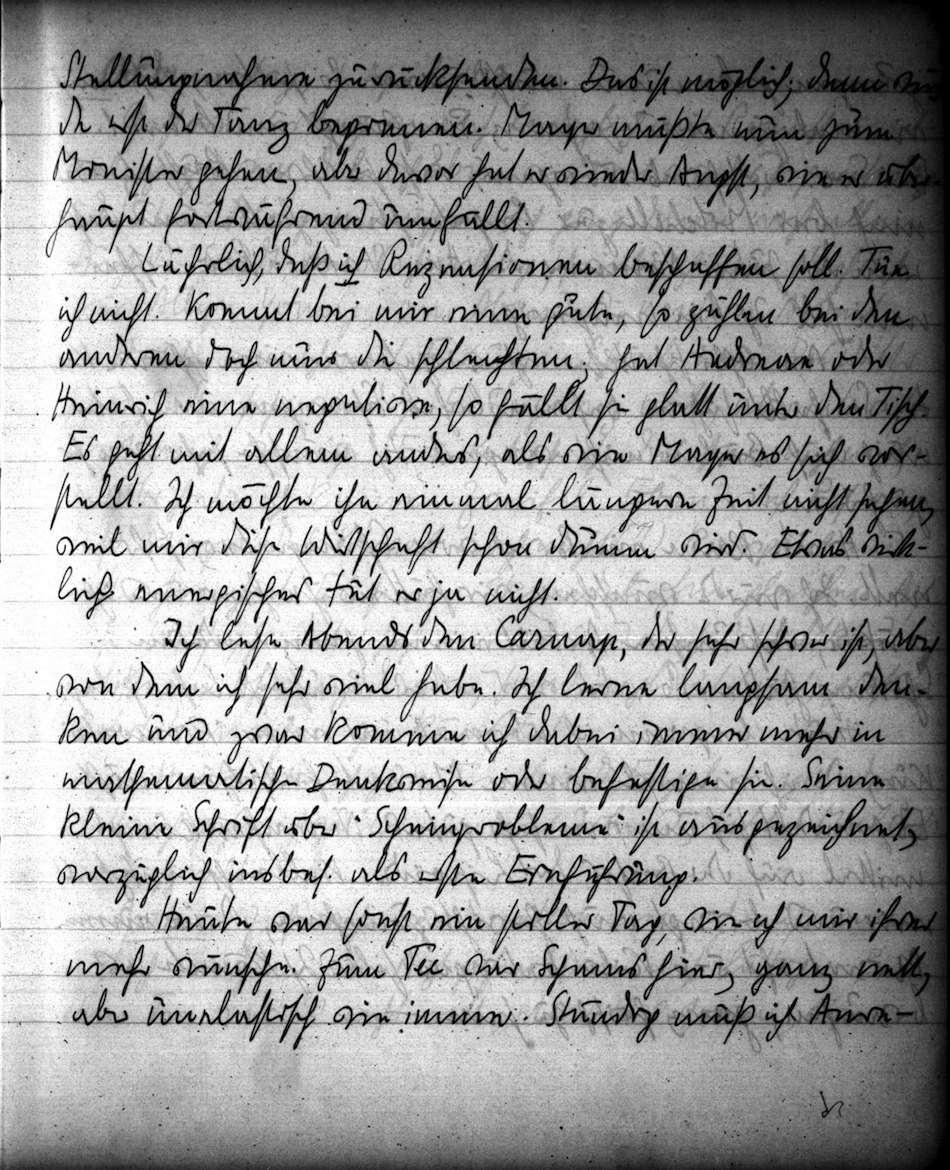 Stellungnahme zurücksenden. Das ist möglich, denn wür-
de erst der Tanz beginnen. Mayer müßte nun zum
Minister gehen, aber davor hat er wieder Angst, wie er über-
haupt fortwährend umfällt.
Lächerlich, daß ich Rezensionen beschaffen soll. Tue
ich nicht. Kommt bei mir eine gute, so zählen bei den
anderen doch nur die schlechten; hat Andreae oder
Heinrich eine negative, so fällt sie glatt unter den Tisch.
Es geht mit allem anders, als wie Mayer es sich vor-
stellt. Ich möchte ihn einmal längere Zeit nicht sehen,
weil mir diese Wirtschaft schon dumm wird. Etwas wirk-
lich energisches tut er ja nicht.
Ich lese Abends den Carnap, der sehr schwer ist, aber
von dem ich sehr viel habe. Ich lerne langsam den-
ken und zwar komme ich dabei immer mehr in
mathematische Denkweise oder befestige sie. Seine
kleine Schrift über "Scheinprobleme" ist ausgezeichnet,
vorzüglich insbes. als erste Einführung.
Heute war sonst ein stiller Tag, wie ich mir ihrer
mehr wünsche. Zum Tee war Schams hier, ganz nett,
aber unelastisch wie immer. Ständig muß ich Anre-